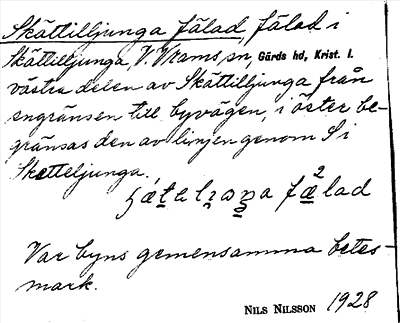 Skättilljunga fälad, fälad i
Skättilljunga, V. Vrams sn, Gärds hd, Krist. l.
västra delen av Skättilljunga från
sngränsen till byvägen, i öster be-
gränsas den av linjen genom S i
Sketteljunga.
fælad
Var byns gemensamma betes-
mark.
NILS NILSSON 1928